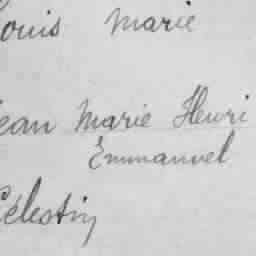 ouis Marie
ean Marie Henri
Emmanuel
Célestin